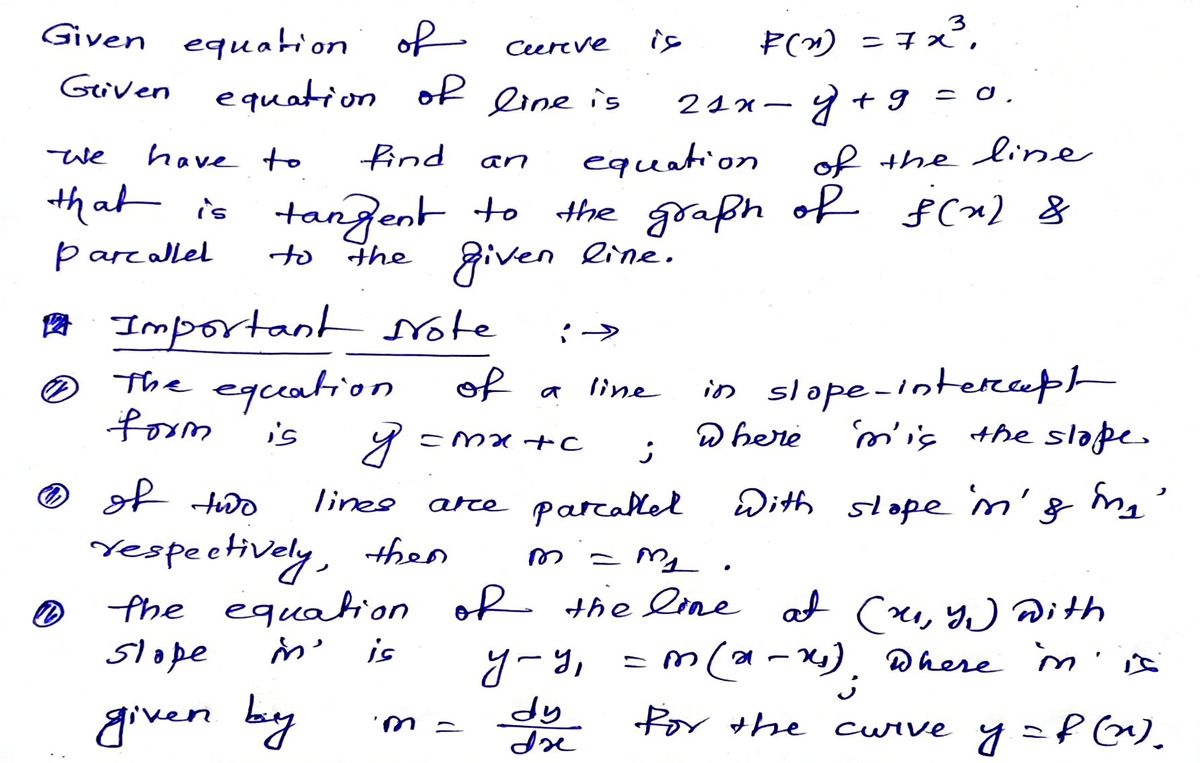 Given equation of curve is F(x) = 7x³.
Given equation of line is 21x - y + 9 = 0.
We have to find an equation of the line
that is tangent to the graph of f(x) &
parallel to the given line.
Important Note :→
The equation of a line in slope-intercept
form is y = mx + c ; where 'm' is the slope.
If two lines are parallel with slope 'm' & 'm₁'
respectively, then m = m₁ .
The equation of the line at (x₁, y₁) with
slope 'm' is y - y₁ = m(x - x₁) ; where 'm' is
given by 'm = dy/dx for the curve y = f(x).